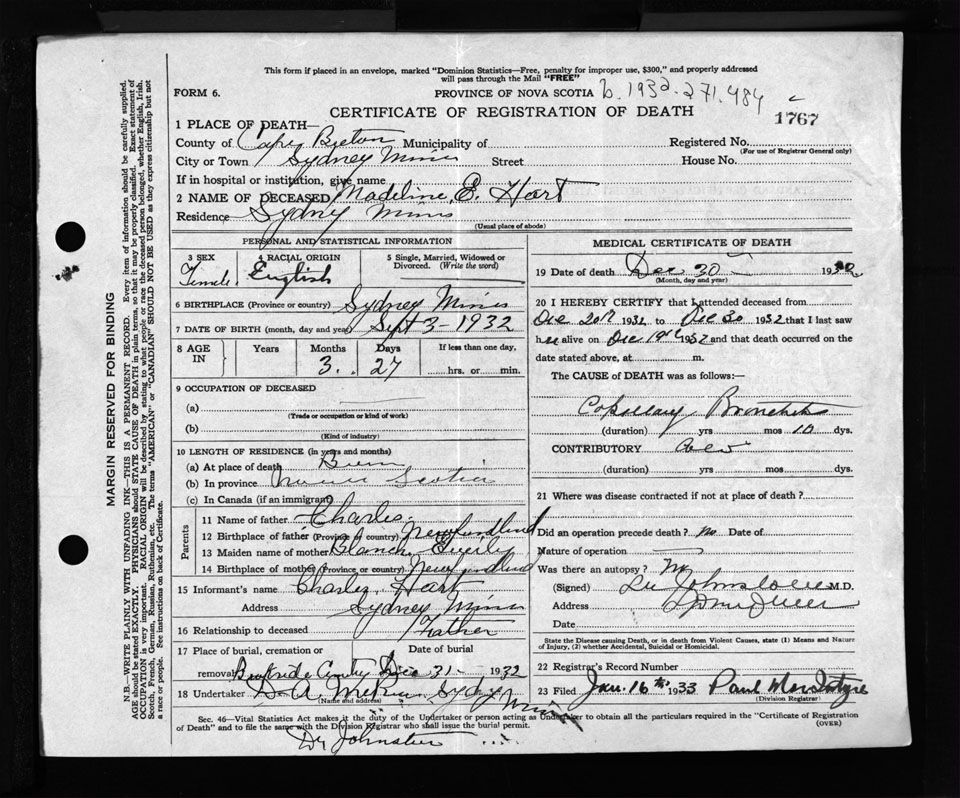 This form if placed in an envelope, marked "Dominion Statistics—Free, penalty for improper use, $300," and properly addressed
will pass through the Mail "FREE"
FORM 6.
PROVINCE OF NOVA SCOTIA b.1932.271.484
CERTIFICATE OF REGISTRATION OF DEATH
1767
1 PLACE OF DEATH—
County of Cape Breton Municipality of
Registered No.
(For use of Registrar General only)
City or Town Sydney Mines Street House No.
If in hospital or institution, give name
2 NAME OF DECEASED Madeline E. Hart
Residence Sydney Mines
(Usual place of abode)
PERSONAL AND STATISTICAL INFORMATION
3 SEX Female
4 RACIAL ORIGIN English
5 Single, Married, Widowed or Divorced. (Write the word)
6 BIRTHPLACE (Province or country) Sydney Mines
7 DATE OF BIRTH (month, day and year) Sept 3-1932
8 AGE IN
Years Months Days If less than one day,
3 27 hrs. or min.
9 OCCUPATION OF DECEASED
(a)
(Trade or occupation or kind of work)
(b)
(Kind of industry)
10 LENGTH OF RESIDENCE (in years and months)
(a) At place of death
(b) In province Nova Scotia
(c) In Canada (if an immigrant)
Parents
11 Name of father Charles
12 Birthplace of father (Province or country) Newfundlund
13 Maiden name of mother Blanch
14 Birthplace of mother (Province or country) Newfundlund
15 Informant's name Charles Hart
Address Sydney Mines
16 Relationship to deceased Father
17 Place of burial, cremation or removal Date of burial
Brookside Dec 31- 1932
18 Undertaker Sydney Mines
(Name and address)
MEDICAL CERTIFICATE OF DEATH
19 Date of death Dec 30 1932
(Month, day and year)
20 I HEREBY CERTIFY that I attended deceased from
Dec 20th 1932 to Dec 30 1932 that I last saw
her alive on Dec 19th 1932 and that death occurred on the
date stated above, at m.
The CAUSE of DEATH was as follows:—
Bronchitis
(duration) yrs mos 10 dys.
CONTRIBUTORY
(duration) yrs mos dys.
21 Where was disease contracted if not at place of death?
Did an operation precede death? No Date of
Nature of operation
Was there an autopsy? No
(Signed) Dr Johnstone M.D.
Address
Date
State the Disease causing Death, or in death from Violent Causes, state (1) Means and Nature
of Injury, (2) whether Accidental, Suicidal or Homicidal.
22 Registrar's Record Number
23 Filed Jan. 16th 1933 Paul MacIntyre
(Division Registrar)
Sec. 46—Vital Statistics Act makes it the duty of the Undertaker or person acting as Undertaker to obtain all the particulars required in the "Certificate of Registration
of Death" and to file the same with the Division Registrar who shall issue the burial permit.
(OVER)
Dr Johnston
MARGIN RESERVED FOR BINDING
N.B.—WRITE PLAINLY WITH UNFADING INK—THIS IS A PERMANENT RECORD. Every item of information should be carefully supplied.
AGE should be stated EXACTLY. PHYSICIANS should STATE CAUSE OF DEATH in plain terms, so that it may be properly classified. Exact statement of
OCCUPATION is very important. RACIAL ORIGIN will be described by stating to what people or race the deceased person belonged, whether English, Irish,
Scotch, French, German, Russian, Ruthenian, etc. The terms "AMERICAN" or "CANADIAN" SHOULD NOT BE USED as they express citizenship but not
a race or people. See instructions on back of Certificate.